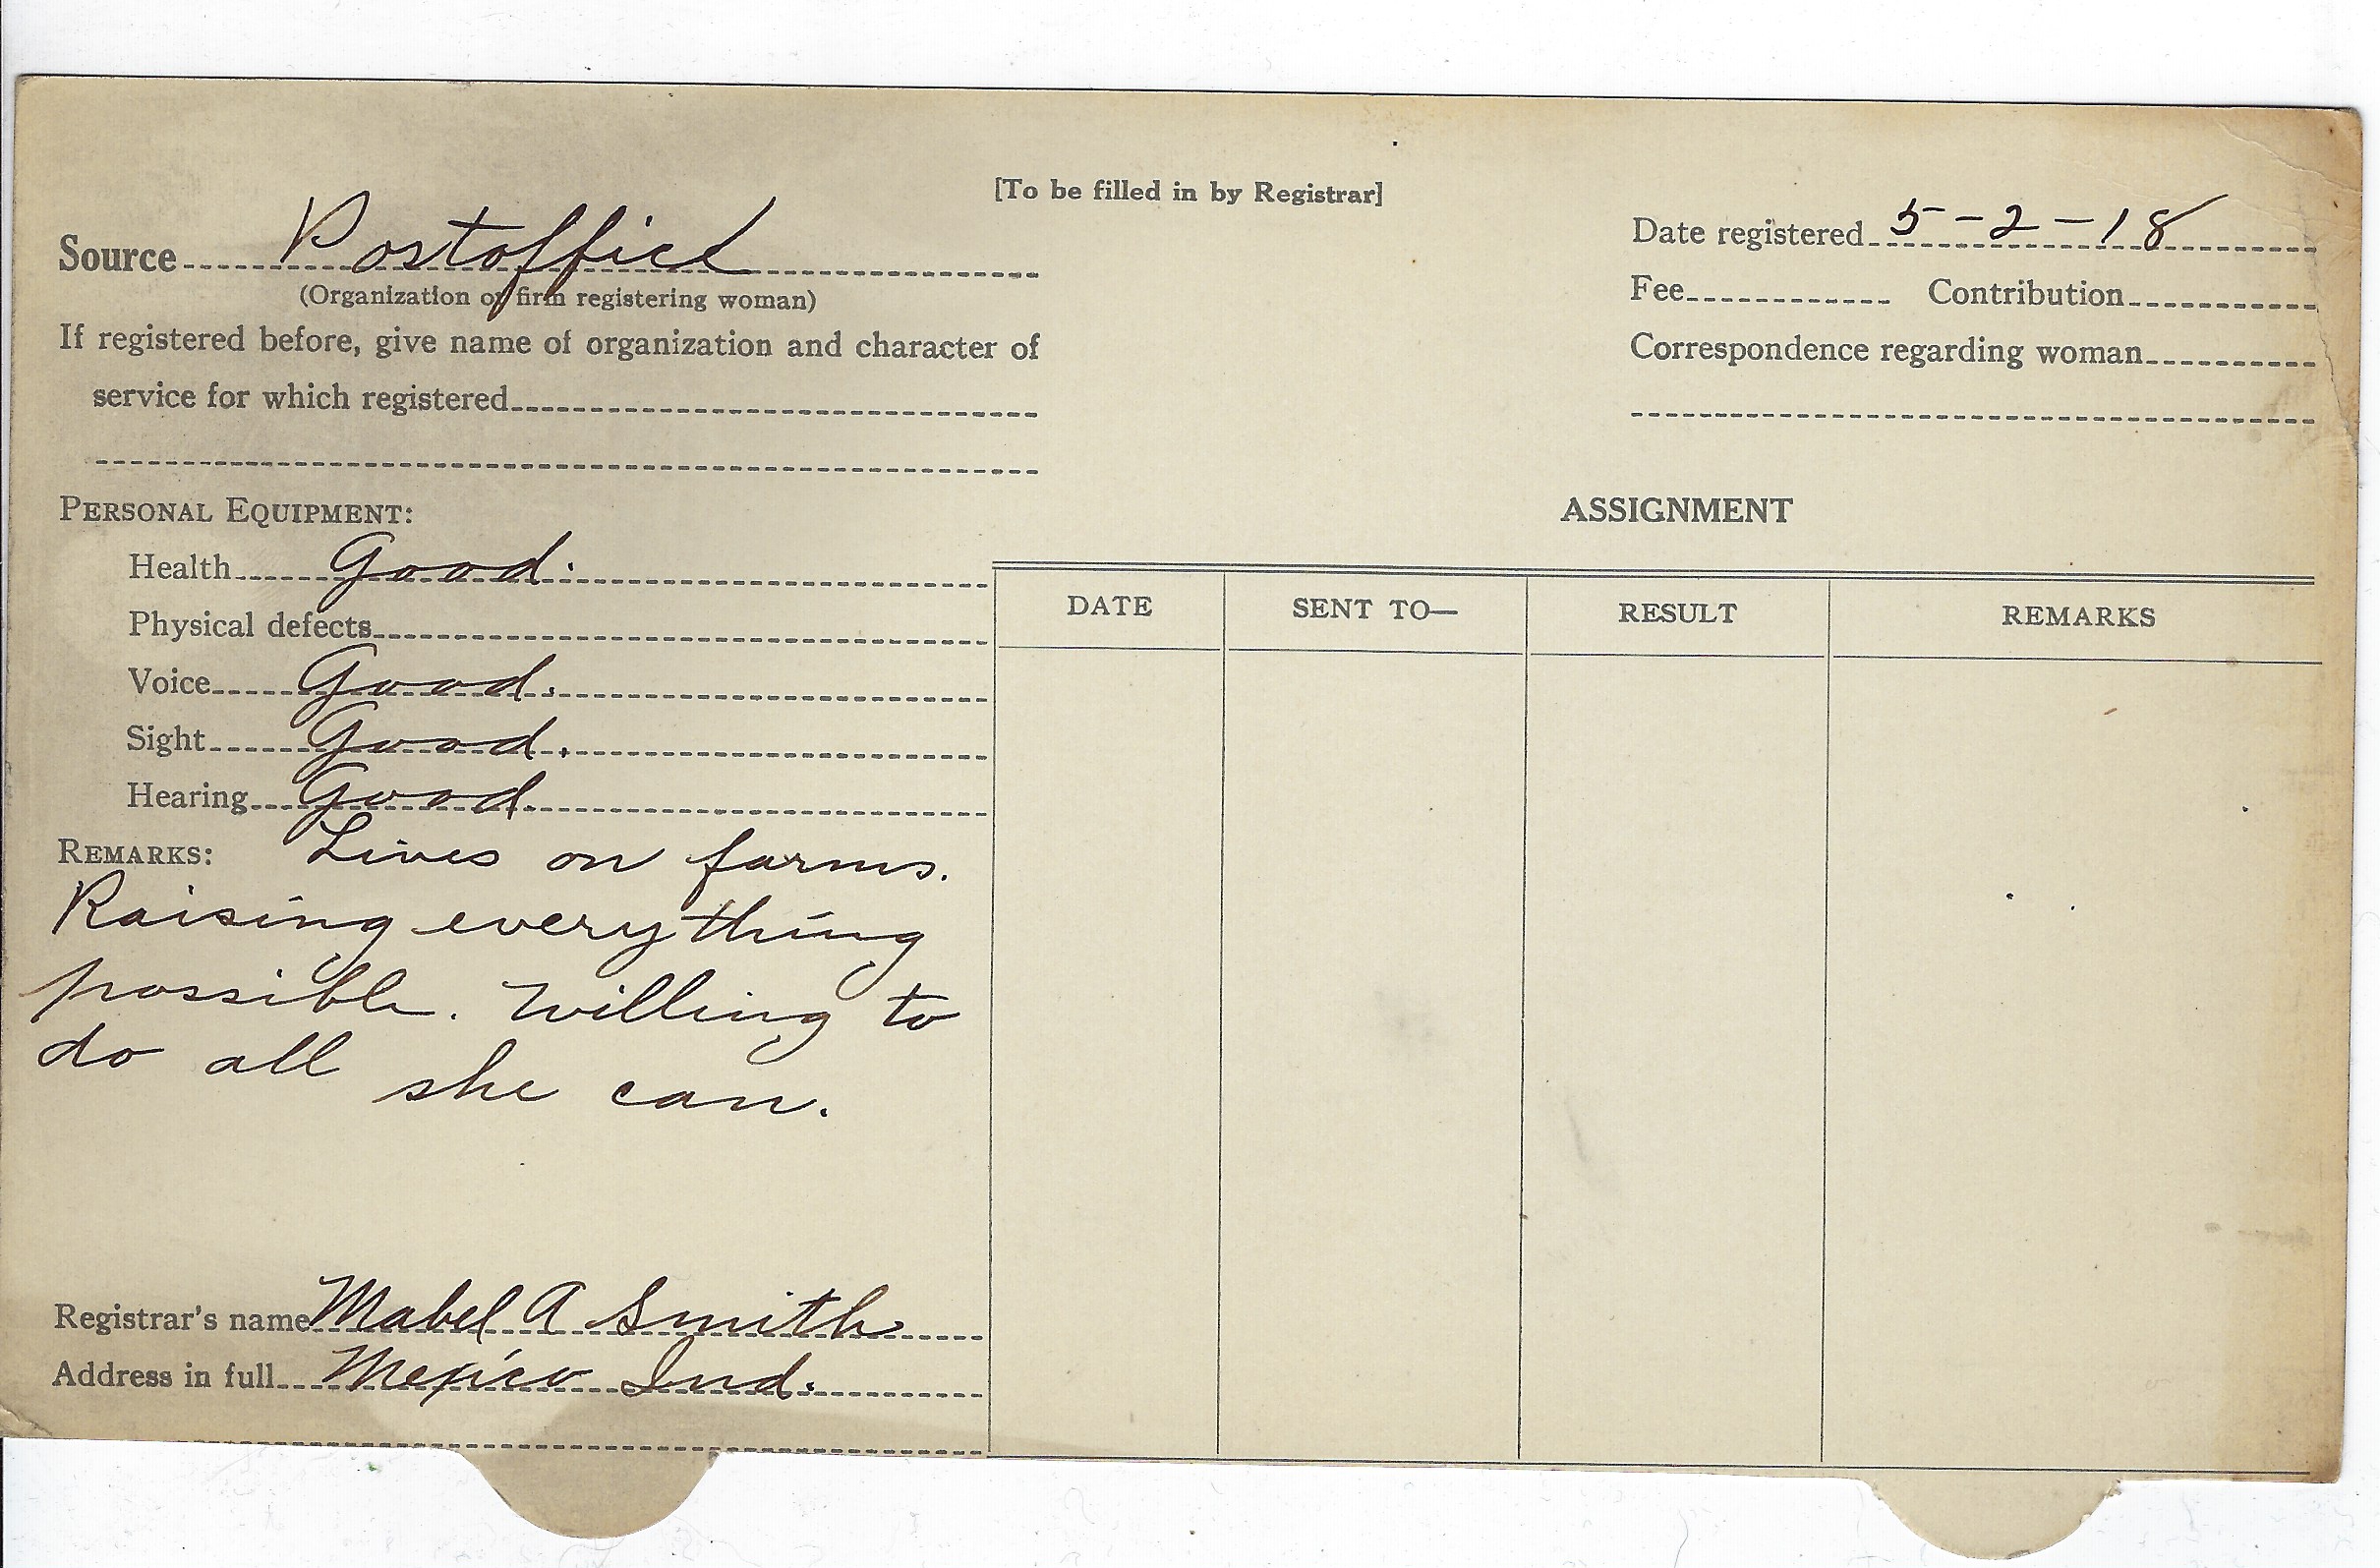 [To be filled in by Registrar]
Source Postoffice
(Organization or firm registering woman)
If registered before, give name of organization and character of
service for which registered
Date registered 5-2-18
Fee Contribution
Correspondence regarding woman
PERSONAL EQUIPMENT:
Health Good.
Physical defects
Voice Good.
Sight Good.
Hearing Good.
REMARKS: Lives on farms.
Raising everything
possible. Willing to
do all she can.
Registrar's name Mabel A Smith
Address in full Mexico Ind.
ASSIGNMENT
DATE SENT TO— RESULT REMARKS